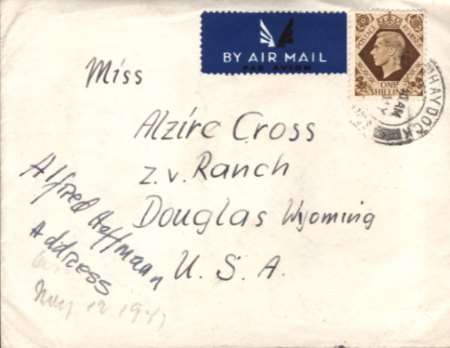 BY AIR MAIL
PAR AVION
POSTAGE REVENUE
ONE
SHILLING
HAYDOCK
AM
Miss
Alzire Cross
Z.V. Ranch
Douglas Wyoming
U.S.A.
Alfred Hoffmann
Address